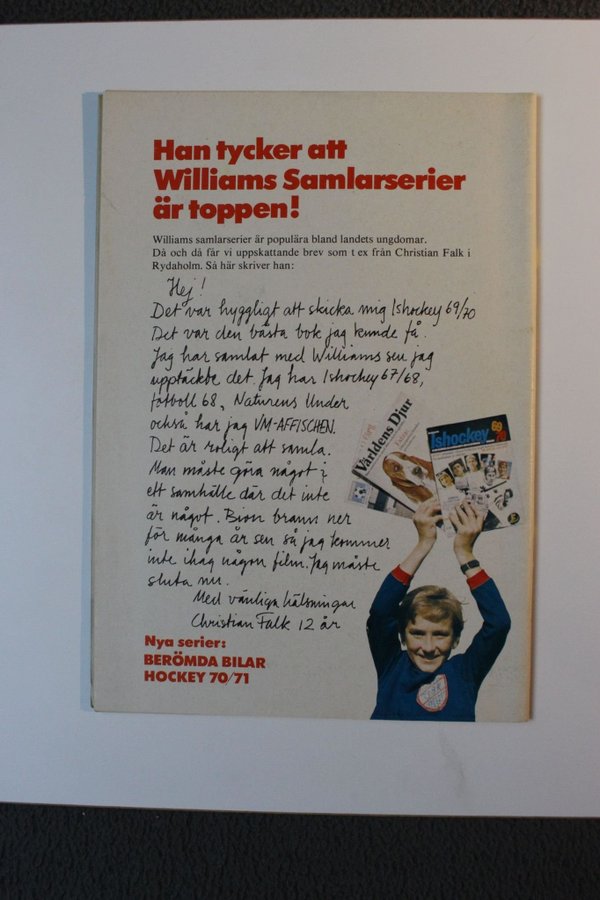 Han tycker att
Williams Samlarserier
är toppen!
Williams samlarserier är populära bland landets ungdomar.
Då och då får vi uppskattande brev som t ex från Christian Falk i
Rydaholm. Så här skriver han:
Hej!
Det var hyggligt att skicka mig Ishockey 69/70
Det var den bästa bok jag kunde få.
Jag har samlat med Williams sen jag
upptäckte det. Jag har Ishockey 67/68,
fotboll 68, Naturens Under
också har jag VM-AFFISCHEN.
Det är roligt att samla.
Man måste göra något i
ett samhälle där det inte
är något. Bion brann ner
för många år sen så jag kommer
inte ihåg någon film. Jag måste
sluta nu.
Med vänliga hälsningar
Christian Falk 12 år
Världens Djur
Ishockey 69
70
Nya serier:
BERÖMDA BILAR
HOCKEY 70/71